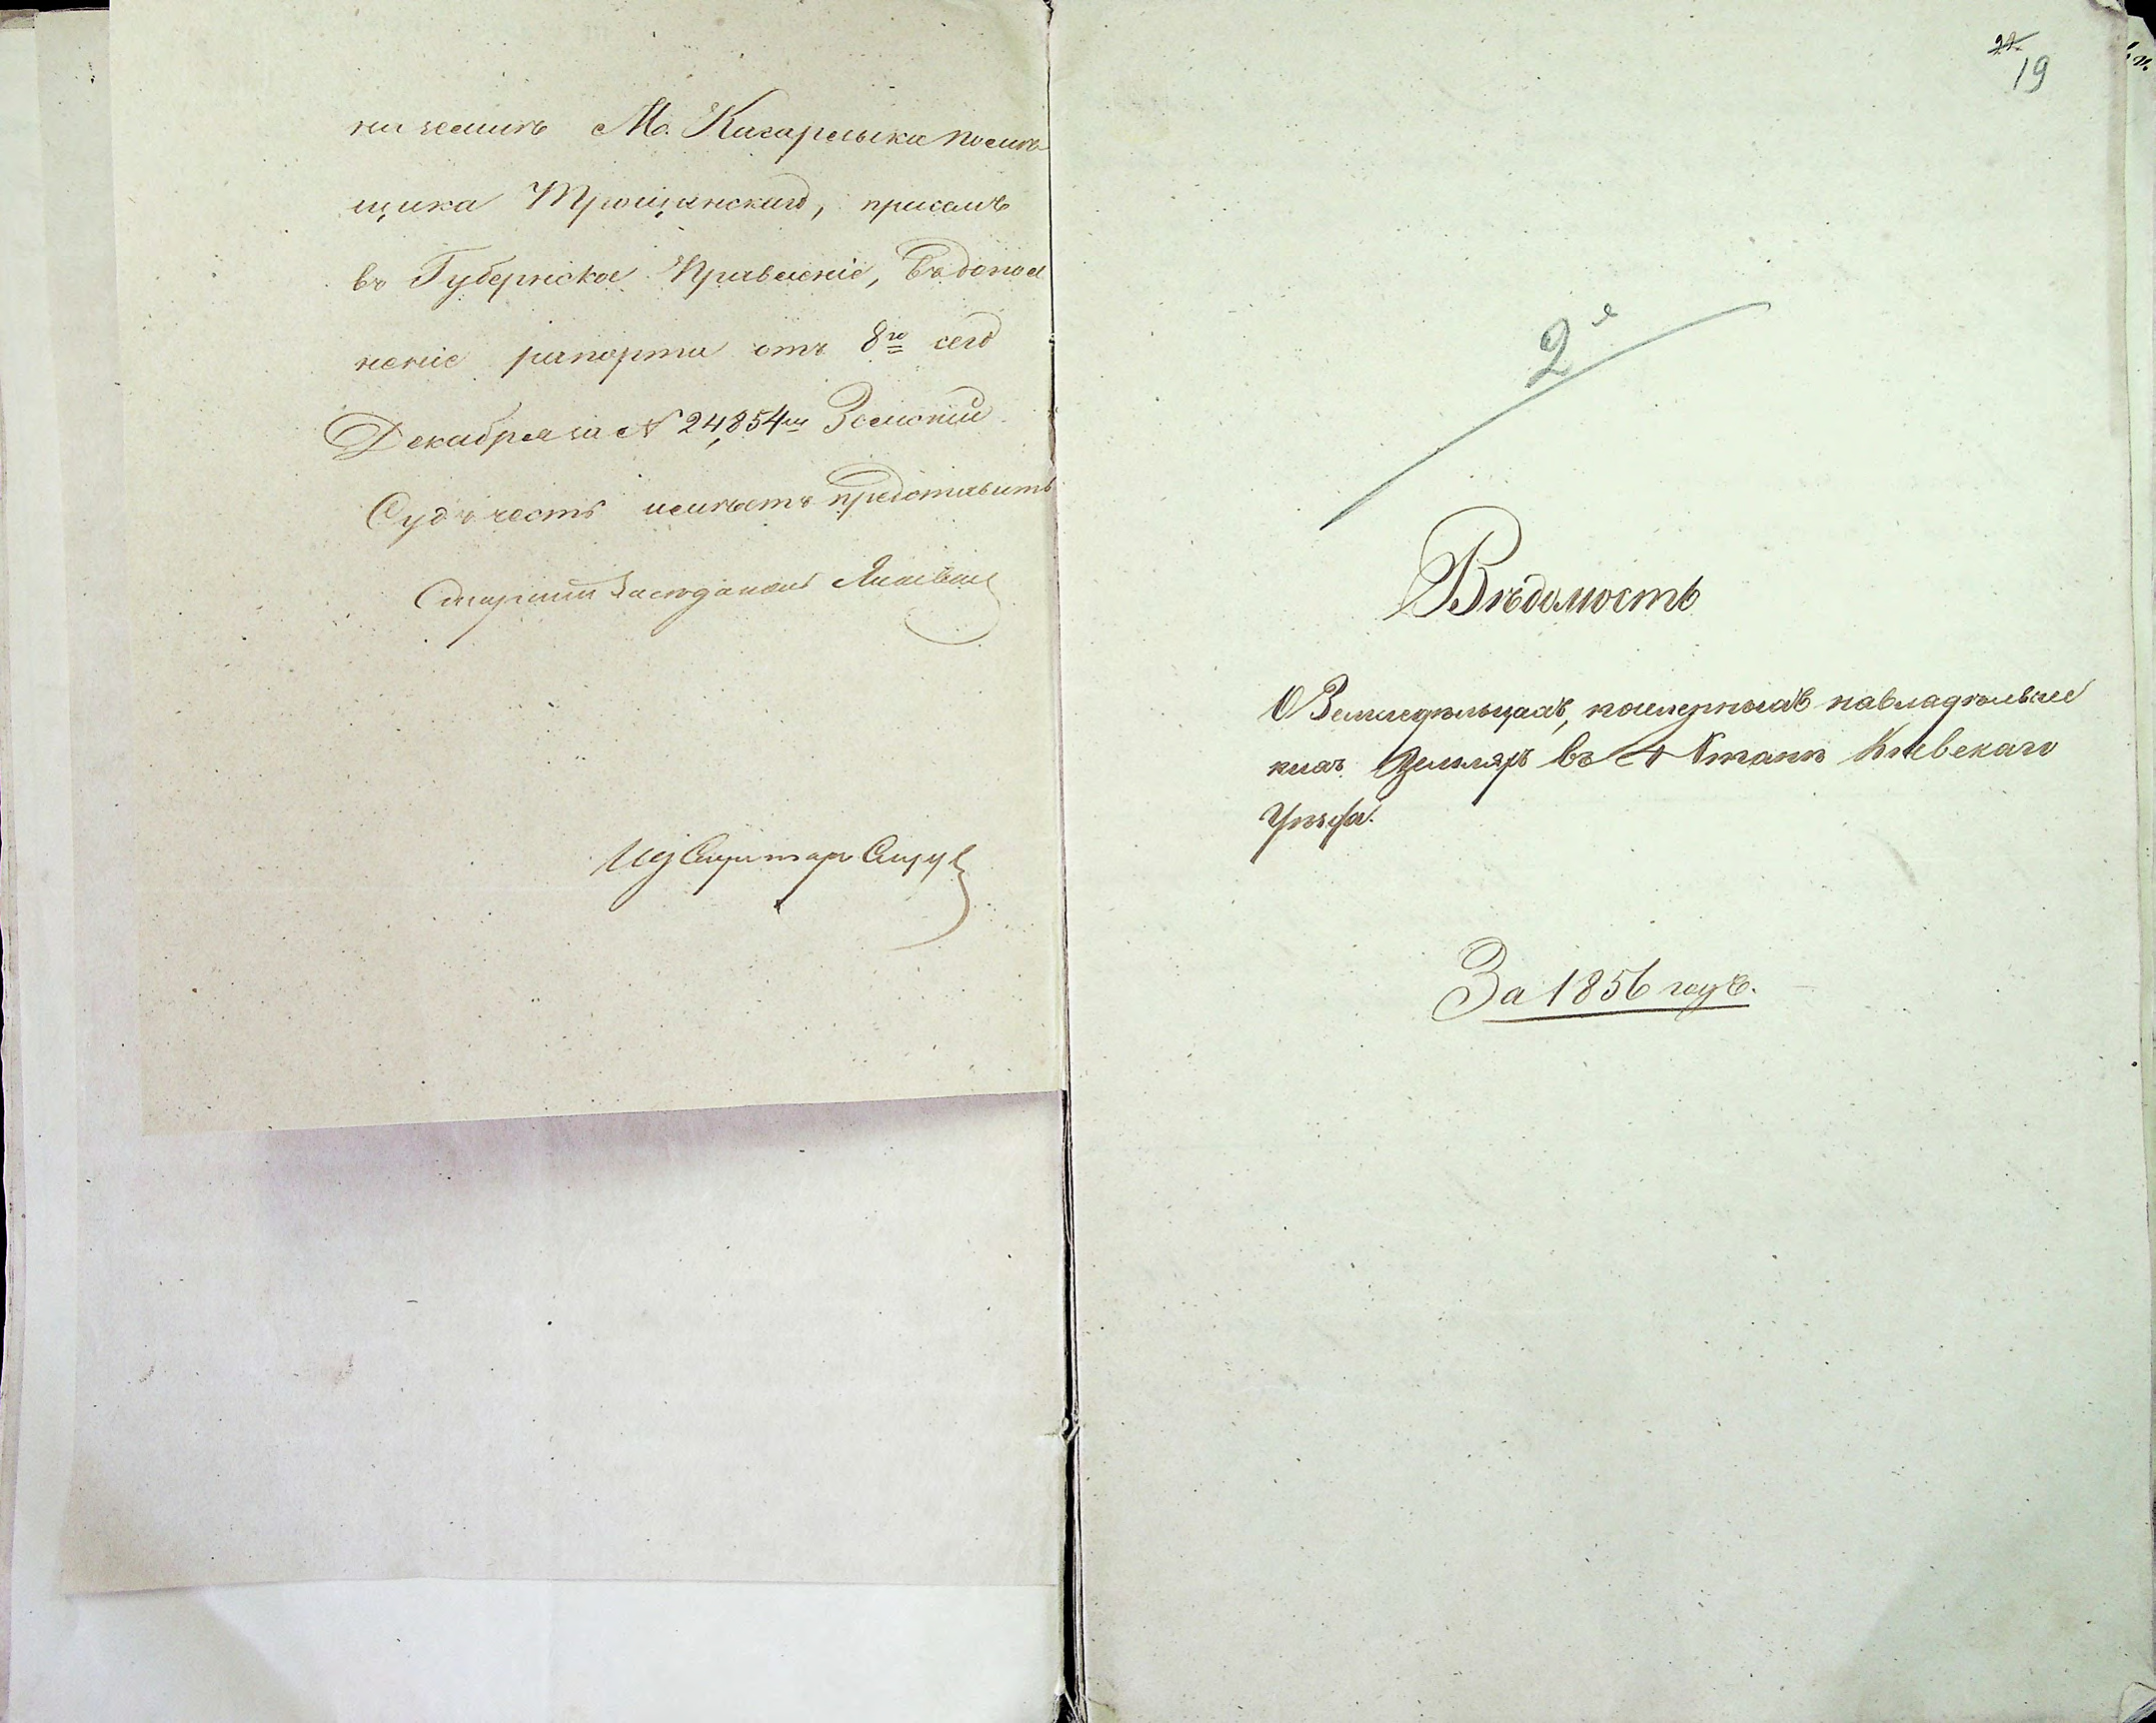 ничемъ М. Кагарлыка помѣ
щика Трощинскаго, присемъ
въ Губернское Правленіе, въ допол
неніе рапорта отъ 8го сего
Декабря за № 24,854м Земскій
Судъ честь имѣетъ представить
Старшій Засѣдатель
Ид Секретаря
22
19
2я
Вѣдомость
О Земледѣльцахъ, поселенныхъ на владѣльчес
кихъ Земляхъ въ 4 Станѣ Кіевскаго
Уѣзда.
За 1856 годъ.